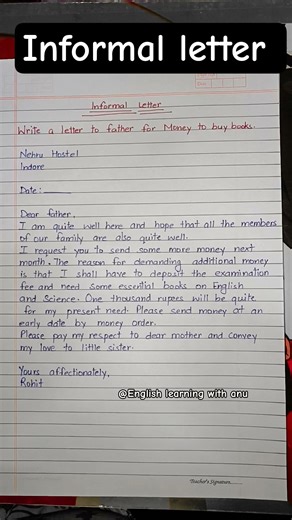 Informal letter
Informal Letter
Write a letter to father for Money to buy books.
Nehru Hostel
Indore
Date:
Dear father,
I am quite well here and hope that all the members
of our family are also quite well.
I request you to send some more money next
month. The reason for demanding additional money
is that I shall have to deposit the examination
fee and need Some essential books on English
and Science. One thousand rupees will be quite
for my present need. Please send money at an
early date by money order.
Please pay my respect to dear mother and convey
my love to little sister.
Yours affectionately,
Rohit
@English learning with anu
Teacher's Signature........